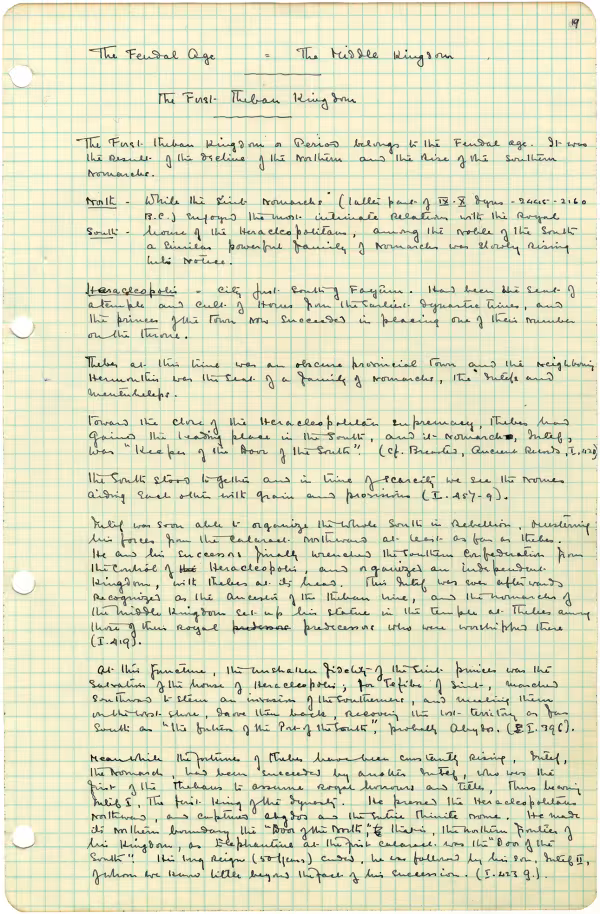 19
The Feudal Age = The Middle Kingdom
The First Theban Kingdom
The First Theban Kingdom or Period belongs to the Feudal age. It was
the result of the decline of the Northern and the rise of the Southern
Nomarchs.
North - While the Siut Nomarchs (latter part of IX-X Dyns - 2445-2160
B.C.) enjoyed the most intimate relations with the Royal
South - house of the Heracleopolitans, among the nobles of the South
a similar powerful family of Nomarchs was slowly rising
into notice.
Heracleopolis - City just South of Fayum. Had been the seat of
a temple and cult of Horus from the earliest dynastic times, and
the princes of the town now succeeded in placing one of their number
on the throne.
Thebes at this time was an obscure provincial town and the neighboring
Hermonthis was the seat of a family of nomarchs, the Intefs and
Mentuhoteps.
Toward the close of the Heracleopolitan supremacy, Thebes had
gained the leading place in the South, and its Nomarch, Intef,
was "Keeper of the Door of the South". (Cf. Breasted, Ancient Records, I, 420)
The South stood together and in time of scarcity we see the nomes
aiding each other with grain and provisions (I. 457-9).
Intef was soon able to organize the whole South in rebellion, mustering
his forces from the cataract northward at least as far as Thebes.
He and his successors finally wrenched the Southern Confederation from
the control of Heracleopolis, and organized an independent
Kingdom, with Thebes at its head. This Intef was ever afterwards
recognized as the ancestor of the Theban line, and the monarchs of
the Middle Kingdom set up his statue in the temple at Thebes among
those of their royal predecessors who were worshipped there
(I. 419).
At this juncture, the unshaken fidelity of the Siut princes was the
salvation of the house of Heracleopolis; for Tefibe of Siut, marched
Southward to stem an invasion of the Southerners, and meeting them
on the west shore, drove them back, recovering the lost territory as far
South as "the fortress of the Port of the South", probably Abydos. (I. 396).
Meanwhile the fortunes of Thebes have been constantly rising, Intef,
the Nomarch, had been succeeded by another Intef, who was the
first of the Thebans to assume royal honours and titles, thus becoming
Intef I, the first King of the dynasty. He pressed the Heracleopolitans
Northward, and captured Abydos and the entire Thinite nome. He made
its northern boundary the "Door of the North", that is, the northern frontier of
his Kingdom, as Elephantine at the first cataract was the "Door of the
South". His long reign (50 years) ended, he was followed by his son, Intef II,
of whom we know little beyond the fact of his succession. (I. 423 g.).